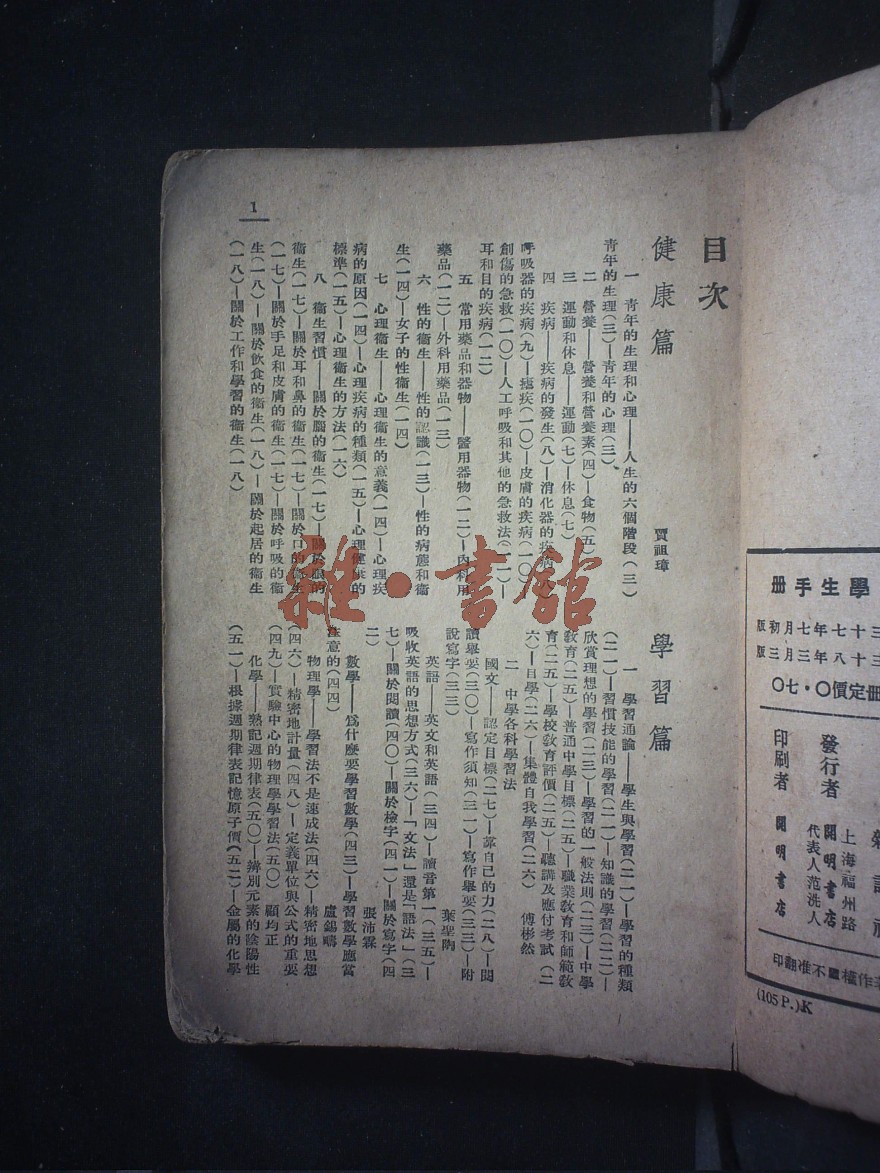 目次
健康篇
賈祖璋
一 青年的生理和心理——人生的六個階段(三)—
青年的生理(三)—青年的心理(三)
二 營養——營養和營養素(四)—食物(五)
三 運動和休息——運動(七)—休息(七)
四 疾病——疾病的發生(八)—消化器的疾病
呼吸器的疾病(九)—瘧疾(一〇)—皮膚的疾病(一〇)
創傷的急救(一〇)—人工呼吸和其他的急救法(一一)—
耳和目的疾病(一二)
五 常用藥品和器物——醫用器物(一二)—內科用
藥品(一二)—外科用藥品(一三)
六 性的衛生——性的認識(一三)—性的病態和衛
生(一四)—女子的性衛生(一四)
七 心理衛生——心理衛生的意義(一四)—心理疾
病的原因(一四)—心理疾病的種類(一五)—心理健康的
標準(一五)—心理衛生的方法(一六)
八 衛生習慣——關於腦的衛生(一七)—關於眼的
衛生(一七)—關於耳和鼻的衛生(一七)—關於口的衛生
(一七)—關於手足和皮膚的衛生(一七)—關於呼吸的衛
生(一八)—關於飲食的衛生(一八)—關於起居的衛生
(一八)—關於工作和學習的衛生(一八)
學習篇
一 學習通論——學生與學習(二一)—學習的種類
(二一)—習慣技能的學習(二一)—知識的學習(二二)—
欣賞理想的學習(二三)—學習的一般法則(二三)—中學
教育(二五)—普通中學目標(二五)—職業教育和師範教
育(二五)—學校教育評價(二五)—聽講及應付考試(二
六)—自學(二六)—集體自我學習(二六) 傅彬然
二 中學各科學習法
國文——認定目標(二七)—靠自己的力(二八)—閱
讀舉要(三〇)—寫作須知(三一)—寫作舉要(三三)—附
說寫字(三三) 葉聖陶
英語——英文和英語(三四)—讀音第一(三五)—
吸收英語的思想方式(三六)—「文法」還是「語法」(三
七)—關於閱讀(四〇)—關於檢字(四一)—關於寫字(四
二) 張沛霖
數學——爲什麼要學習數學(四三)—學習數學應當
注意的(四四) 盧錫疇
物理學——學習法不是速成法(四六)—精密地思想
(四六)—精密地計量(四八)—定義單位與公式的重要
(四九)—實驗中心的物理學學習法(五〇) 顧均正
化學——熟記週期律表(五〇)—辨別元素的陰陽性
(五一)—根據週期律表記憶原子價(五二)—金屬的化學
1
學生手冊
三十七年七月初版
三十八年三月三版
冊定價〇·七〇
發行者
開明書店
上海福州路
代表人范洗人
印刷者 開明書店
著作權不准翻印
(105 P.)K
雜·書館